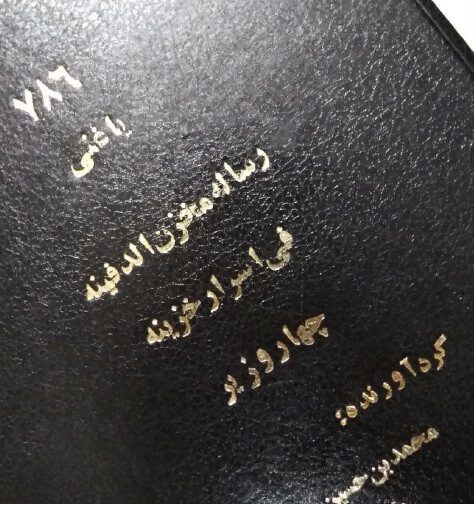 ۷۸۶
یا غنی
رساله مخزن الدفینه
فی اسرار خزینه
چهار وزیر
گردآورنده:
محمد بن حسین